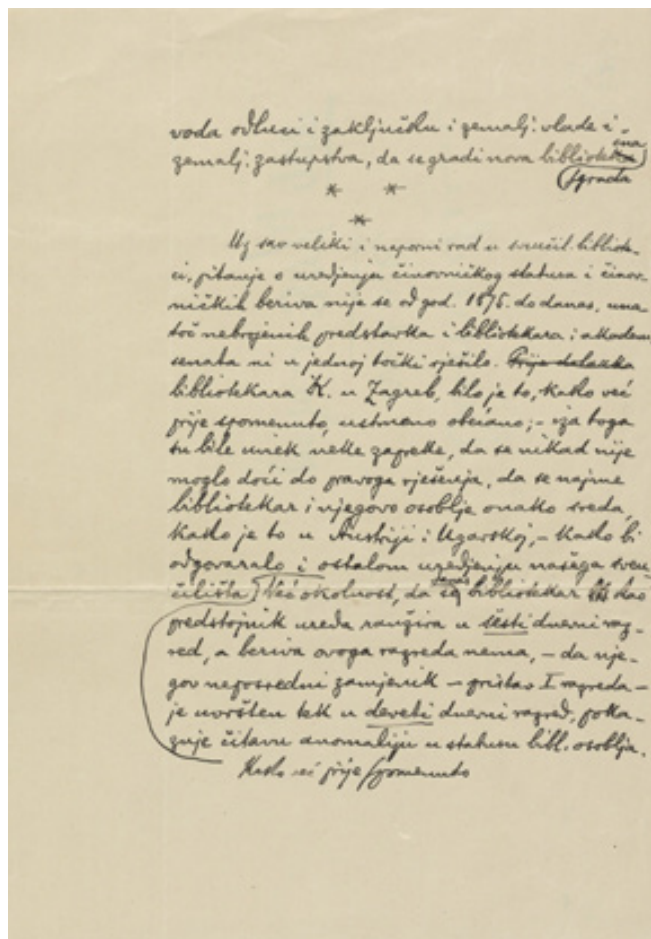 voda odluci i zaključku i zemalj. vlade i
zemalj. zastupstva, da se gradi nova bibliotekarna
zgrada
* *
*
Uz sav veliki i naporni rad u sveučil. bibliote-
ci, pitanje o uredjenju činovničkog statusa i činov-
ničkih beriva nije se od god. 1875. do danas, una-
toč nebrojenih predstavka i bibliotekara i akadem.
senata ni u jednoj točki riješilo. Prije dolaska
bibliotekara K. u Zagreb, bilo je to, kako već
prije spomenuto, ustmeno obećano; – iza toga
su bile uviek neke zapreke, da se nikad nije
moglo doći do pravoga rješenja, da se najme
bibliotekar i njegovo osoblje onako sreda,
kako je to u Austriji i Ugarskoj, – kako bi
odgovaralo i ostalom uredjenju našega sveu
čilišta. Već okolnost, da se bibliotekar kao
predstojnik ureda ranžira u šesti dnevni raz-
red, a beriva ovoga razreda nema, – da nje-
gov neposredni zamjenik – pristav I razreda –
je uvršten tek u deveti dnevni razred, poka-
zuje čitavu anomaliju u statusu bibl. osoblja.
Kako već prije spomenuto